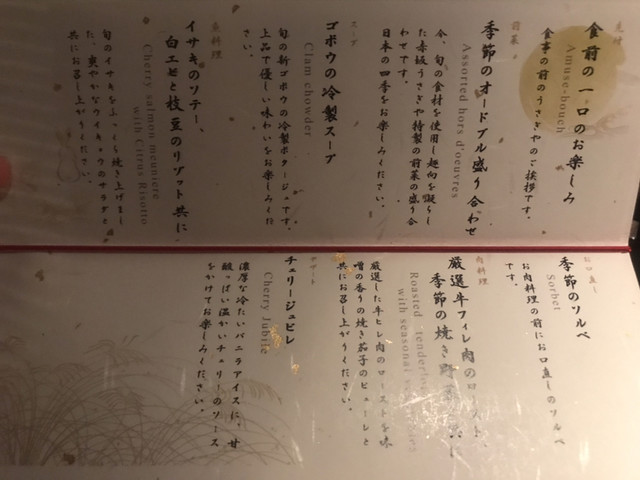 先付
食前の一口のお楽しみ
Amuse-bouch
食事の前のうさぎやのご挨拶です。
前菜
季節のオードブル盛り合わせ
Assorted hors d'oeuvres
今、旬の食材を使用し趣向を凝らし
た赤坂うさぎや特製の前菜の盛り合
わせです。
日本の四季をお楽しみください。
スープ
ゴボウの冷製スープ
Clam chowder
旬の新ゴボウの冷製ポタージュです。
上品で優しい味わいをお楽しみくだ
さい。
魚料理
イサキのソテー、
白エビと枝豆のリゾット共に
Cherry salmon meuniere
with Citrus Risotto
旬のイサキをふっくら焼き上げまし
た。爽やかなウイキョウのサラダと
共にお召し上がりください。
お口直し
季節のソルベ
Sorbet
お肉料理の前にお口直しのソルベ
です。
肉料理
厳選牛フィレ肉のロースト、
季節の焼き野菜と共に
Roasted
with seasonal
厳選した牛ヒレ肉のローストを味
噌の香りの焼き茄子のピューレと
共にお召し上がりください。
デザート
チェリージュビレ
Cherry Jubile
濃厚な冷たいバニラアイスに、甘
酸っぱい温かいチェリーのソース
をかけてお楽しみください。